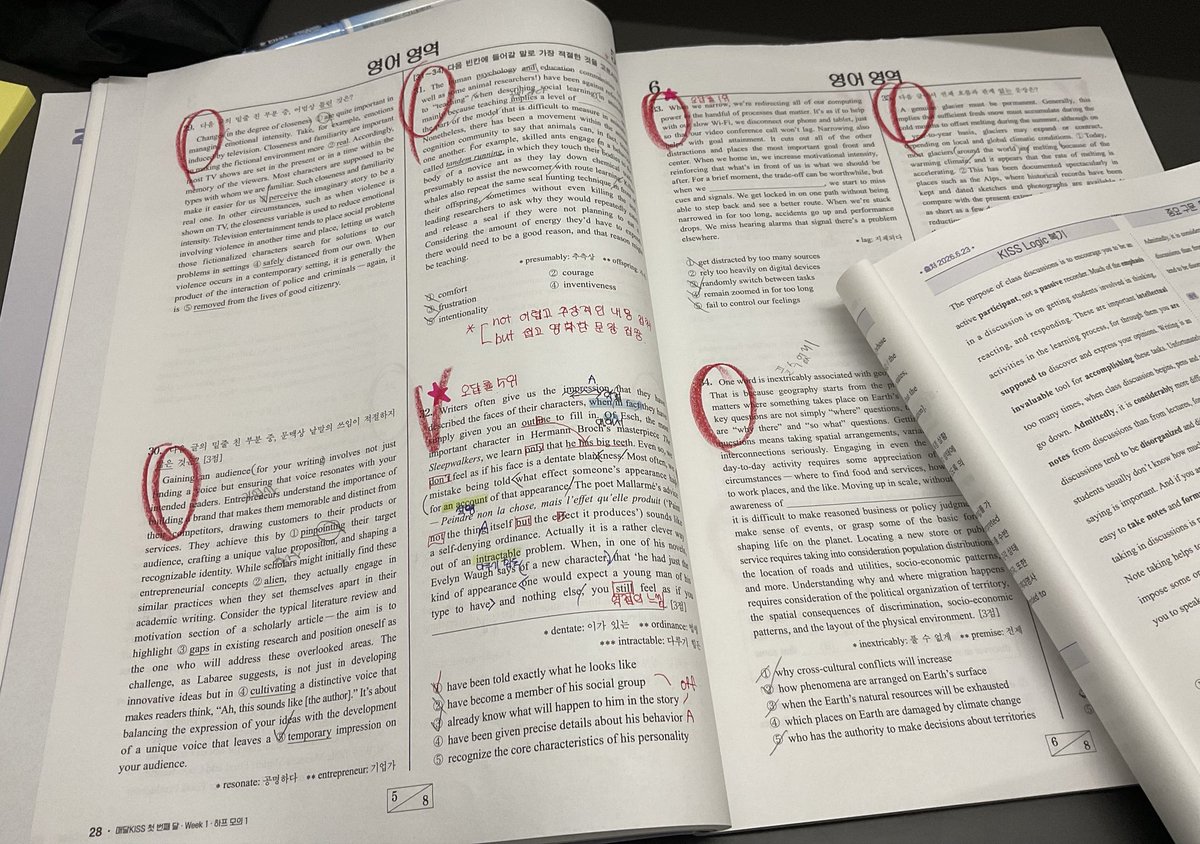 영어 영역
다음 글의 밑줄 친 부분 중, 어법상 틀린 것은?
Changes in the degree of closeness ① are quite important in
managing emotional intensity. Take, for example, emotions
induced by television. Closeness and familiarity are important
in making the fictional environment more ② real. Accordingly,
most TV shows are set in the present or in a time within the
memory of the viewers. Most characters are supposed to be
types with whom we are familiar. Such closeness and familiarity
make it easier for us ③ perceive the imaginary story to be a
real one. In other circumstances, such as when violence is
shown on TV, the closeness variable is used to reduce emotional
intensity. Television entertainment tends to place social problems
involving violence in another time and place, letting us watch
those fictionalized characters search for solutions to our
problems in settings ④ safely distanced from our own. When
violence occurs in a contemporary setting, it is generally the
product of the interaction of police and criminals — again, it
is ⑤ removed from the lives of good citizenry.
30. 글의 밑줄 친 부분 중, 문맥상 낱말의 쓰임이 적절하지
않은 것은? [3점]
Gaining an audience for your writing involves not just
finding a voice but ensuring that voice resonates with your
intended readers. Entrepreneurs understand the importance of
building a brand that makes them memorable and distinct from
their competitors, drawing customers to their products or
services. They achieve this by ① pinpointing their target
audience, crafting a unique value proposition, and shaping a
recognizable identity. While scholars might initially find these
entrepreneurial concepts ② alien, they actually engage in
similar practices when they set themselves apart in their
academic writing. Consider the typical literature review and
motivation section of a scholarly article — the aim is to
highlight ③ gaps in existing research and position oneself as
the one who will address these overlooked areas. The
challenge, as Labaree suggests, is not just in developing
innovative ideas but in ④ cultivating a distinctive voice that
makes readers think, “Ah, this sounds like [the author].” It's about
balancing the expression of your ideas with the development
of a unique voice that leaves a ⑤ temporary impression on
your audience.
* resonate: 공명하다 ** entrepreneur: 기업가
28 • 매달KISS 첫 번째 달 · Week 1 · 하프 모의 1
[31~34] 다음 빈칸에 들어갈 말로 가장 적절한 것을 고르
31. The human psychology and education
well as some animal researchers) have been against
to “teaching” when describing social learning in
mainly because teaching implies a level of
the part of the model that is difficult to measure in
Nonetheless, there has been a movement within the
cognition community to say that animals can, in
one another. For example, skilled ants engage in a
called tandem running, in which they touch their
body of a novice ant as they lay down chemical
presumably to assist the newcomer with route learning
whales also repeat the same seal hunting technique
their offspring, sometimes without even killing the
leading researchers to ask why they would repeatedly
and release a seal if they were not planning to
Considering the amount of energy they'd have to
there would need to be a good reason, and that reason
be teaching.
* presumably: 추측상 ** offspring:
① comfort
② courage
③ frustration
④ inventiveness
⑤ intentionality
* not 어렵고 추상적인 내용 검색
but 쉽고 명확한 문장 검증
오답률 4위
32. Writers often give us the impression that they have
described the faces of their characters, when in fact they have
simply given you an outline to fill in. Of Esch, the most
important character in Hermann Broch's masterpiece The
Sleepwalkers, we learn only that he has big teeth. Even so, we
don't feel as if his face is a dentate blankness. Most often, we
mistake being told what effect someone's appearance has
for an account of that appearance. The poet Mallarmé's advice
— Peindre non la chose, mais l'effet qu'elle produit (‘Paint
not the thing itself but the effect it produces’) sounds like
a self-denying ordinance. Actually it is a rather clever way
out of an intractable problem. When, in one of his novels,
Evelyn Waugh says of a new character, that ‘he had just the
kind of appearance one would expect a young man of his
type to have’ and nothing else, you still feel as if you
[3점]
* dentate: 이가 있는 ** ordinance:
*** intractable: 다루기 힘든
① have been told exactly what he looks like
② have become a member of his social group
③ already know what will happen to him in the story
④ have been given precise details about his behavior
⑤ recognize the core characteristics of his personality
off
A
5 8
6
영어 영역
오답률 1위
33. When we narrow, we're redirecting all of our computing
power to the handful of processes that matter. It's as if to help
with our slow Wi-Fi, we disconnect our phone and tablet, just
so that our video conference call won't lag. Narrowing also
helps with goal attainment. It cuts out all of the other
distractions and places the most important goal front and
center. When we home in, we increase motivational intensity,
reinforcing that what's in front of us is what we should be
after. For a brief moment, the trade-off can be worthwhile, but
when we ________, we start to miss
cues and signals. We get locked in on one path without being
able to step back and see a better route. When we're stuck
narrowed in for too long, accidents go up and performance
drops. We miss hearing alarms that signal there's a problem
elsewhere.
* lag: 지체되다
① get distracted by too many sources
② rely too heavily on digital devices
③ randomly switch between tasks
④ remain zoomed in for too long
⑤ fail to control our feelings
34. One word is inextricably associated with
That is because geography starts from the
matters where something takes place on Earth's
key questions are not simply “where” questions,
are “why there” and “so what” questions.
questions means taking spatial arrangements,
interconnections seriously. Engaging in even the
day-to-day activity requires some appreciation of
circumstances — where to find food and services, how
to work places, and the like. Moving up in scale, without
awareness of ________
it is difficult to make reasonable business or policy
make sense of events, or grasp some of the basic
shaping life on the planet. Locating a new store or
service requires taking into consideration population distribution,
the location of roads and utilities, socio-economic patterns,
and more. Understanding why and where migration happens
requires consideration of the political organization of territory,
the spatial consequences of discrimination, socio-economic
patterns, and the layout of the physical environment. [3점]
* inextricably: 풀 수 없게 ** premise: 전제
① why cross-cultural conflicts will increase
② how phenomena are arranged on Earth's surface
③ when the Earth's natural resources will be exhausted
④ which places on Earth are damaged by climate change
⑤ who has the authority to make decisions about territories
6 8
35. 다음 글에서 전체 흐름과 관계 없는 문장은?
A genuine glacier must be permanent. Generally, this
implies that sufficient fresh snow must accumulate during the
cold months to offset melting during the summer, although on
a year-to-year basis, glaciers may expand or contract,
depending on local and global climatic conditions. ① Today,
most glaciers around the world are melting because of the
warming climate, and it appears that the rate of melting is
accelerating. ② This has been documented spectacularly in
places such as the Alps, where historical records have been
kept and dated sketches and photographs are available
compare with the present
as short as a few
• 출처 2026.6.23 •
KISS Logic 복기
The purpose of class discussions is to encourage you to be an
active participant, not a passive recorder. Much of the emphasis
in a discussion is on getting students involved in thinking,
reacting, and responding. These are important intellectual
activities in the learning process, for through them you are
supposed to discover and express your opinions. Writing is an
invaluable tool for accomplishing these tasks. Unfortunately,
too many times, when class discussion begins, pens and
go down. Admittedly, it is considerably more
notes from discussions than from lectures, for
discussions tend to be disorganized and
students usually don't know how much
saying is important. And if you
easy to take notes and
taking in discussions
Note taking helps
impose some or
you to speak